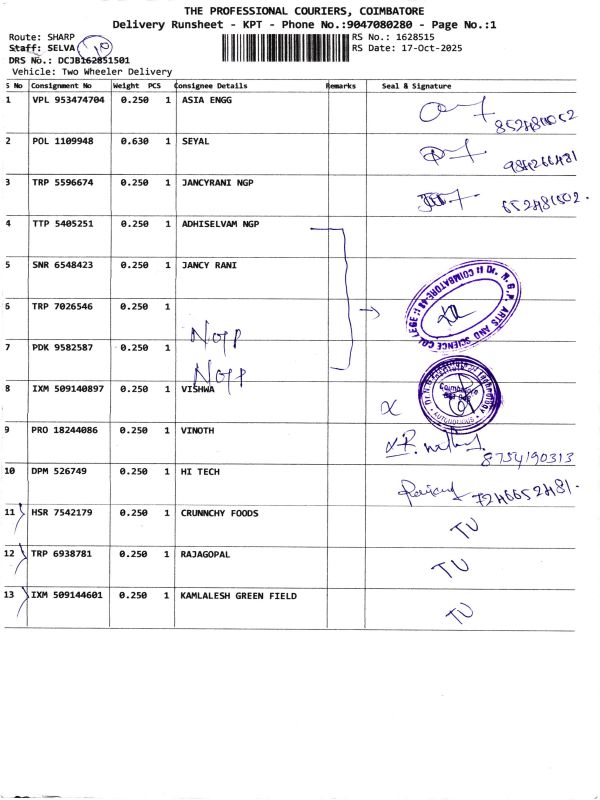 THE PROFESSIONAL COURIERS, COIMBATORE
Delivery Runsheet - KPT - Phone No.:9047080280 - Page No.:1
Route: SHARP RS No.: 1628515
Staff: SELVA 10 RS Date: 17-Oct-2025
DRS No.: DCJB162851501
Vehicle: Two Wheeler Delivery
S No Consignment No Weight PCS Consignee Details Remarks Seal & Signature
1 VPL 953474704 0.250 1 ASIA ENGG
2 POL 1109948 0.630 1 SEYAL
3 TRP 5596674 0.250 1 JANCYRANI NGP
4 TTP 5405251 0.250 1 ADHISELVAM NGP
5 SNR 6548423 0.250 1 JANCY RANI
Dr. N.G.P. ARTS AND SCIENCE COLLEGE COIMBATORE-48
6 TRP 7026546 0.250 1 NGP
7 PDK 9582587 0.250 1 NGP
8 IXM 509140897 0.250 1 VISHWA
9 PRO 18244086 0.250 1 VINOTH 8754190313
10 DPM 526749 0.250 1 HI TECH
11 HSR 7542179 0.250 1 CRUNNCHY FOODS TU
12 TRP 6938781 0.250 1 RAJAGOPAL TU
13 IXM 509144601 0.250 1 KAMLALESH GREEN FIELD TU